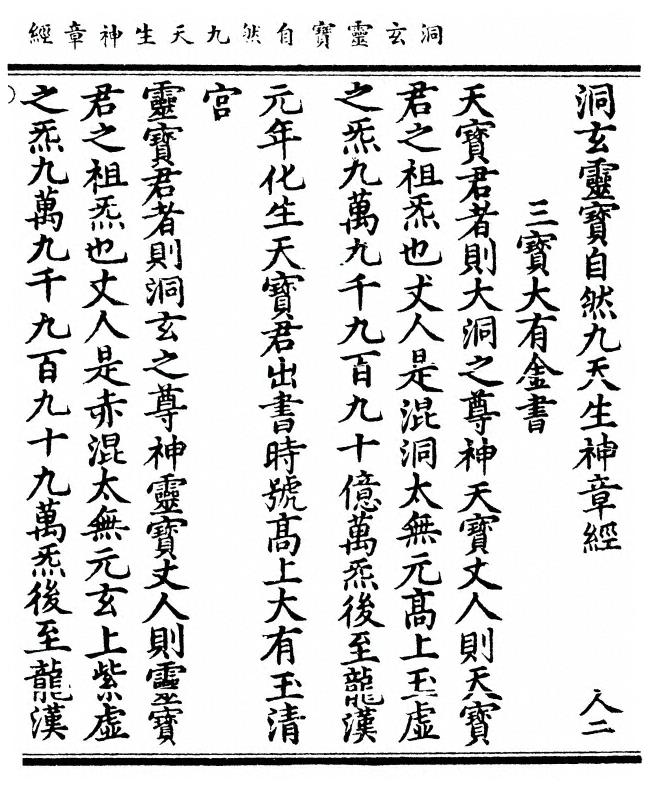 洞玄靈寶自然九天生神章經
洞玄靈寶自然九天生神章經 人二
三寶大有金書
天寶君者則大洞之尊神天寶丈人則天寶
君之祖炁也丈人是混洞太無元高上玉虛
之炁九萬九千九百九十億萬炁後至龍漢
元年化生天寶君出書時號高上大有玉清
宮
靈寶君者則洞玄之尊神靈寶丈人則靈寶
君之祖炁也丈人是赤混太無元玄上紫虛
之炁九萬九千九百九十九萬炁後至龍漢